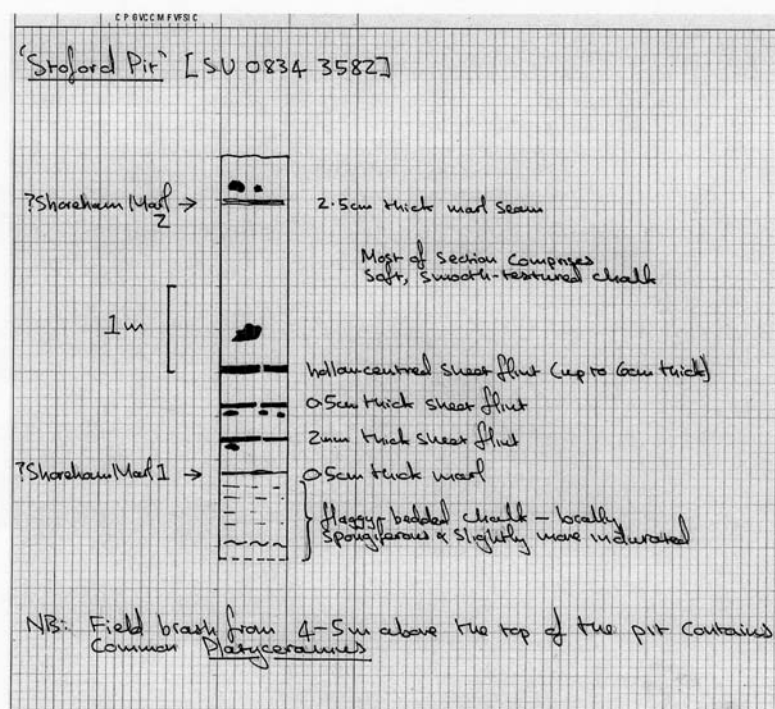 C P GVCCM FVFSIC
'Stoford Pit' [SU 0834 3582]
?Shoreham Marl 2 →
2.5cm thick marl seam
Most of section comprises
soft, smooth-textured chalk
1m
hollow centred sheet flint (up to 6cm thick)
0.5cm thick sheet flint
2mm thick sheet flint
?Shoreham Marl 1 →
0.5cm thick marl
flaggy-bedded chalk – locally
spongiferous & slightly more indurated
NB: Field brash from 4-5m above the top of the pit contains
common Platyceramus